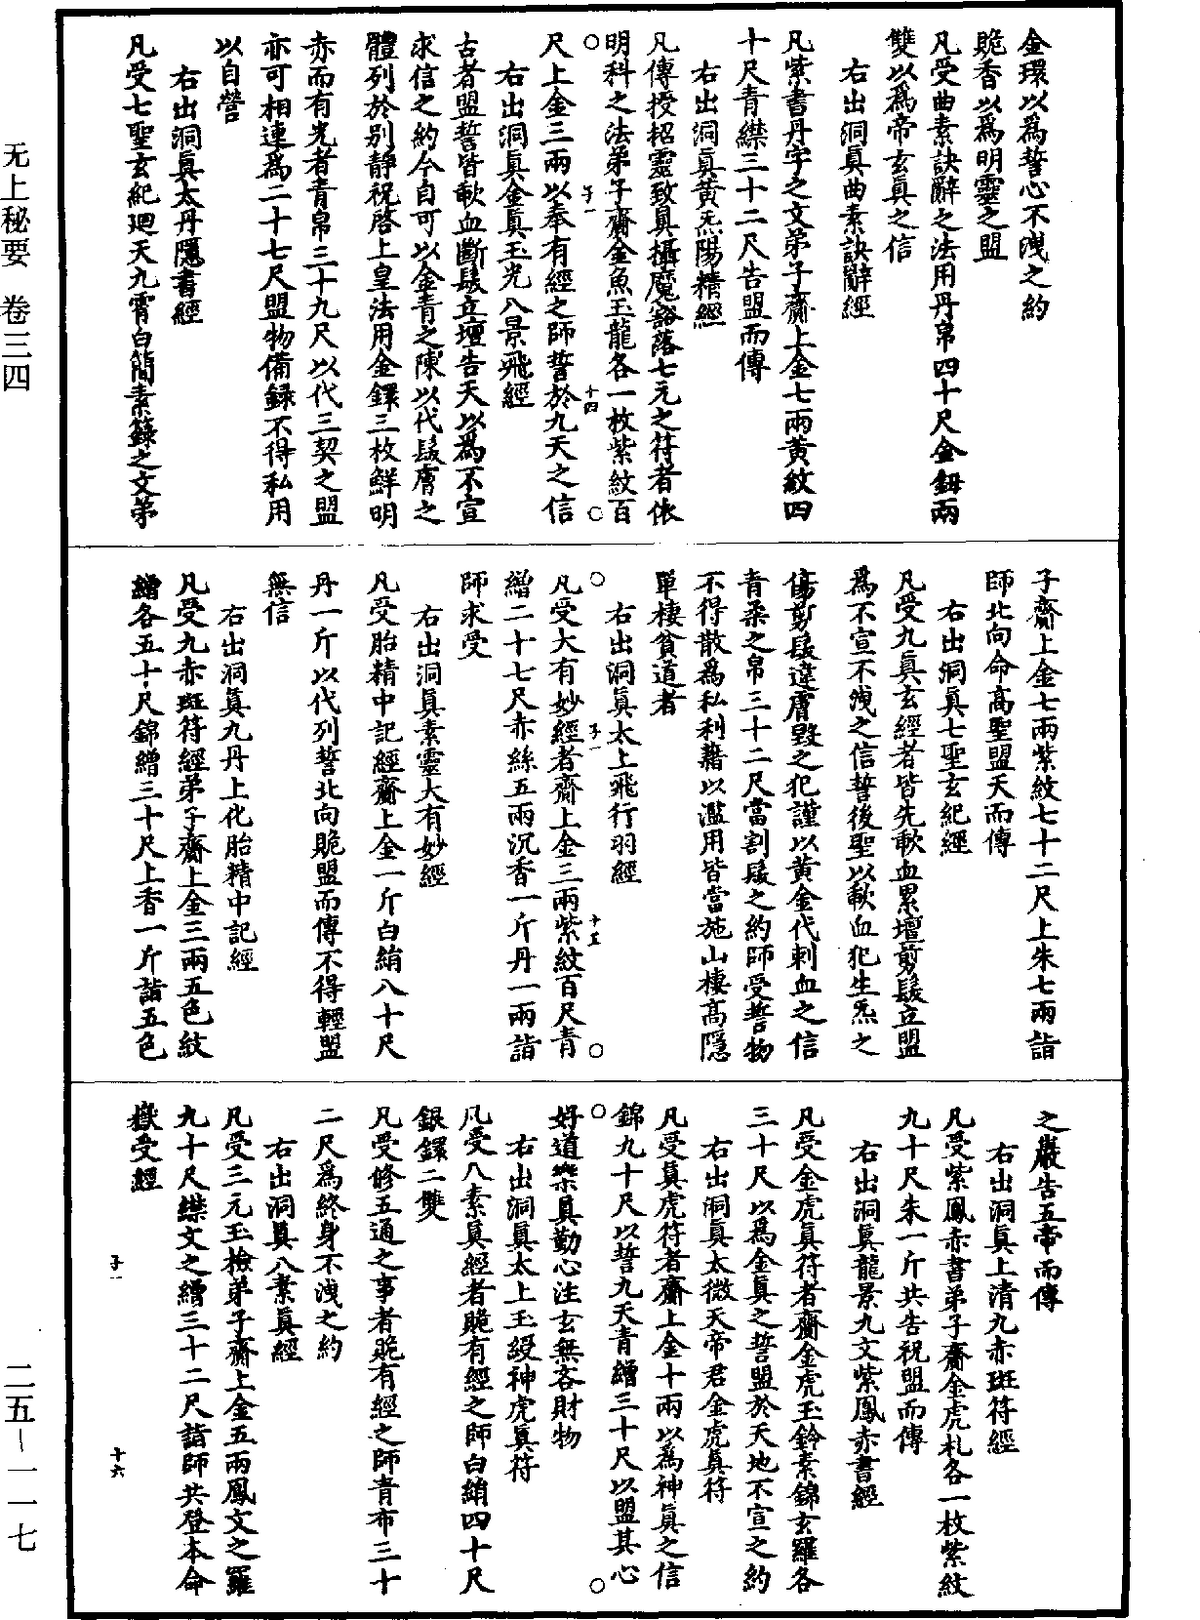 无上秘要 卷三四
金環以為誓心不洩之約
跪香以為明靈之盟
凡受曲素訣辭之法用丹帛四十尺金鈕兩
雙以為帝玄真之信
右出洞真曲素訣辭經
凡紫書丹字之文弟子齋上金七兩黃紋四
十尺青緤三十二尺告盟而傳
右出洞真黃炁陽精經
凡傳授招靈致真攝魔豁落七元之符者依
明科之法弟子齋金魚玉龍各一枚紫紋百
子一 十四
尺上金三兩以奉有經之師誓於九天之信
右出洞真金真玉光八景飛經
古者盟誓皆歃血斷髮立壇告天以為不宣
求信之約今自可以金青之陳以代髮膚之
體列於别静祝啓上皇法用金鐶三枚鮮明
赤而有光者青帛三十九尺以代三契之盟
亦可相連為二十七尺盟物備録不得私用
以自營
右出洞真太丹隱書經
凡受七聖玄紀迴天九霄白簡素籙之文弟
子齋上金七兩紫紋七十二尺上朱七兩詣
師北向命髙聖盟天而傳
右出洞真七聖玄紀經
凡受九真玄經者皆先歃血累壇剪髮立盟
為不宣不洩之信誓後聖以歃血犯生炁之
傷剪髮違膚毀之犯謹以黃金代刺血之信
青柔之帛三十二尺當割髮之約師受誓物
不得散為私利藉以濫用皆當施山棲髙隱
單棲貧道者
右出洞真太上飛行羽經
子一 十五
凡受大有妙經者齋上金三兩紫紋百尺青
繒二十七尺赤絲五兩沉香一斤丹一兩詣
師求受
右出洞真素靈大有妙經
凡受胎精中記經齋上金一斤白絹八十尺
丹一斤以代列誓北向跪盟而傳不得輕盟
無信
右出洞真九丹上化胎精中記經
凡受九赤斑符經弟子齋上金三兩五色紋
繒各五十尺錦繒三十尺上香一斤詣五色
之巖告五帝而傳
右出洞真上清九赤斑符經
凡受紫鳳赤書弟子齋金虎札各一枚紫紋
九十尺朱一斤共告祝盟而傳
右出洞真龍景九文紫鳳赤書經
凡受金虎真符者齋金虎玉鈴素錦玄羅各
三十尺以為金真之誓盟於天地不宣之約
右出洞真太微天帝君金虎真符
凡受真虎符者齋上金十兩以為神真之信
錦九十尺以誓九天青繒三十尺以盟其心
好道樂真勤心注玄無吝財物
右出洞真太上玉綬神虎真符
凡受八素真經者跪有經之師白絹四十尺
銀鐶二雙
凡受修五通之事者跪有經之師青布三十
二尺為終身不洩之約
右出洞真八素真經
凡受三元玉檢弟子齋上金五兩鳳文之羅
九十尺緤文之繒三十二尺詣師共登本命
嶽受經
子一 十六
二五-一一七